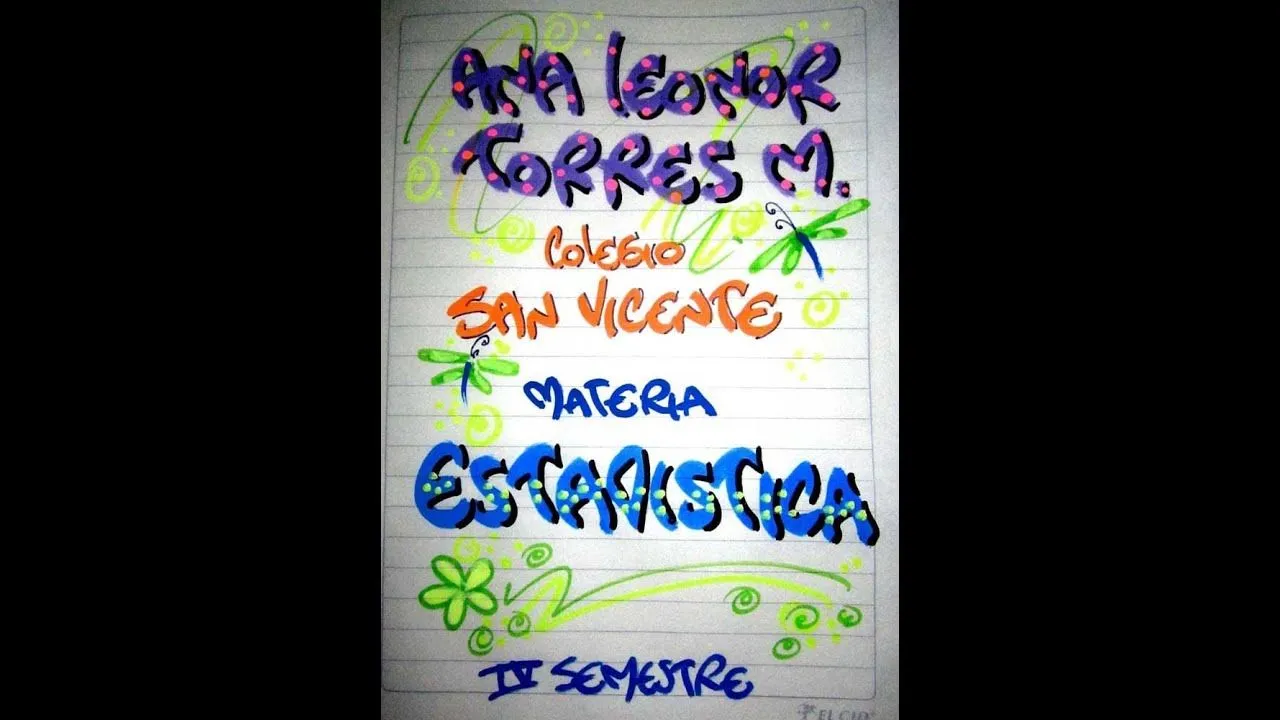 ANA LEONOR
TORRES M.
COLEGIO
SAN VICENTE
MATERIA
ESTADISTICA
IV SEMESTRE
EL CID